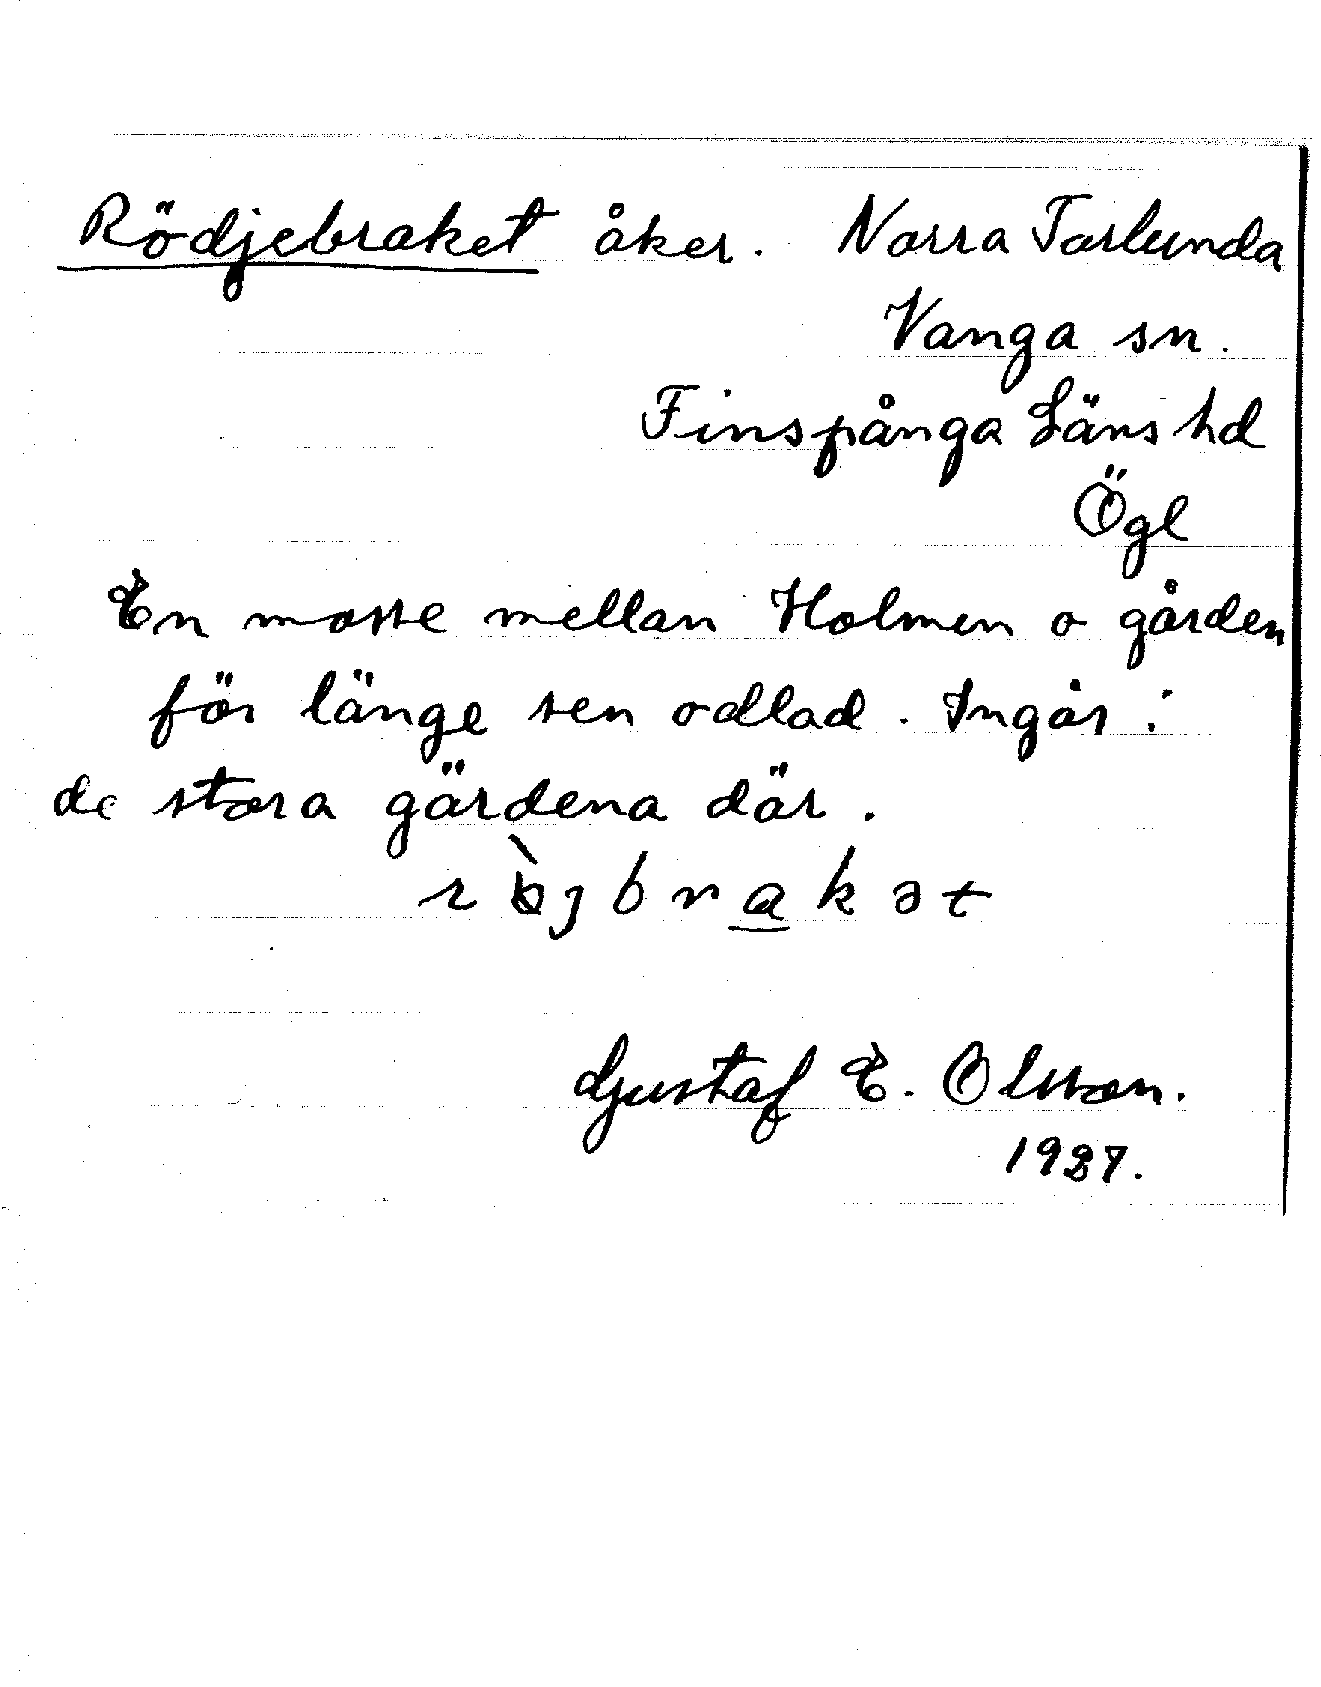 Rödjebraket åker. Norra Torlunda
Vanga sn.
Finspånga Läns hd
Ögl
En mosse mellan Holmen o gården
för länge sen odlad. Ingår i
de stora gärdena där.
r ò̤ j b r a k ə t
Gustaf E. Olsson.
1937.